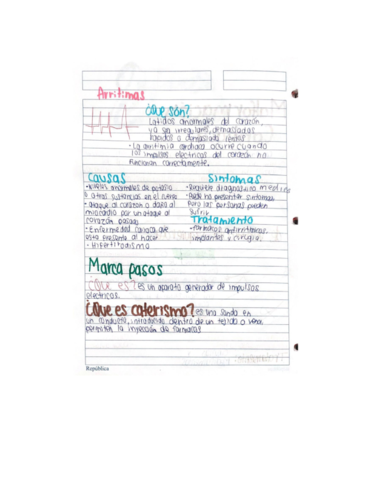 Arritimas
¿Que son?
Latidos anormales del corazón,
ya sea irregulares, demasiadas
rapidos o demasiada lentas
- La arritmia cardiaca ocurre cuando
los impulsos electricos del corazón no
funcionan correctamente.
Causas
- Niveles anormales de potasio
u otras sustancias en el
- Ataque al corazón o daño al
miocardio por un ataque al
corazón pasado
- Enfermedad cariaca que
esta presente al nacer
- Hipertitodismo
Sintomas
- Requiere diagnostico medico
- Puede no presentar sintomas
Pero las personas pueden
sufrir
Tratamiento
- Farmacos antiarritmicos,
implantes y cirugia.
Marca pasos
¿Que es? es un aparato generador de impulsos
electricos.
¿Que es caterismo? es una sonda en
un conducto, introducido dentro de un tejido o vena
permiten la inyección de farmacos
República